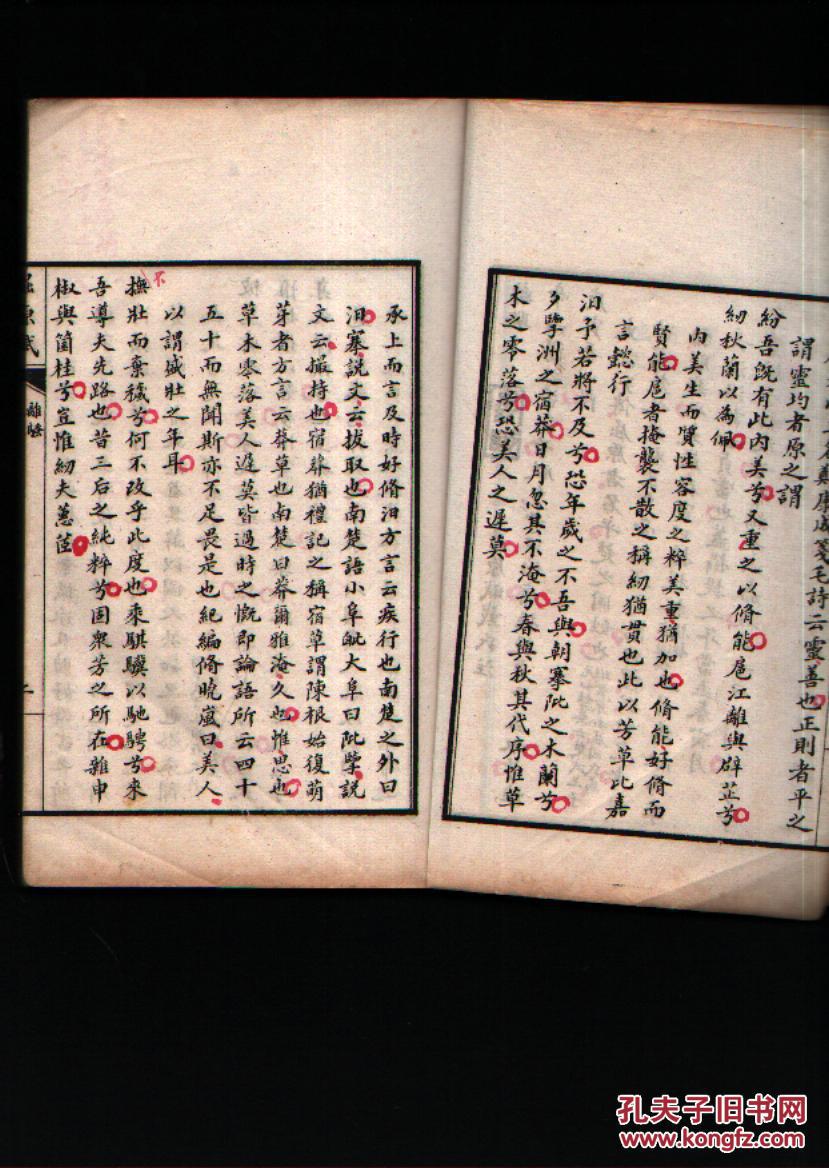 義康成箋毛詩云靈善也正則者平之
謂靈均者原之謂
紛吾既有此內美兮又重之以脩能扈江離與辟芷兮
紉秋蘭以為佩
內美生而質性容度之粹美重猶加也脩能好脩而
賢能扈者掩襲不散之稱紉猶貫也此以芳草比嘉
言懿行
汨予若將不及兮恐年歲之不吾與朝搴阰之木蘭兮
夕擥洲之宿莽日月忽其不淹兮春與秋其代序惟草
木之零落兮恐美人之遲莫
承上而言及時好脩汨方言云疾行也南楚之外曰
汨搴說文云拔取也南楚語小阜曰阰大阜曰阰擥說
文云撮持也宿莽猶禮記之稱宿草謂陳根始復萌
芽者方言云莽草也南楚曰莽爾雅淹久也惟思也
草木零落美人遲莫皆過時之慨即論語所云四十
五十而無聞斯亦不足畏是也紀編脩曉嵐曰美人
以謂盛壯之年耳
不
撫壯而棄穢兮何不改乎此度也乘騏驥以馳騁兮來
吾導夫先路也昔三后之純粹兮固眾芳之所在雜申
椒與箘桂兮豈惟紉夫蕙茝
屈原賦
離騷
二
孔夫子旧书网
www.kongfz.com